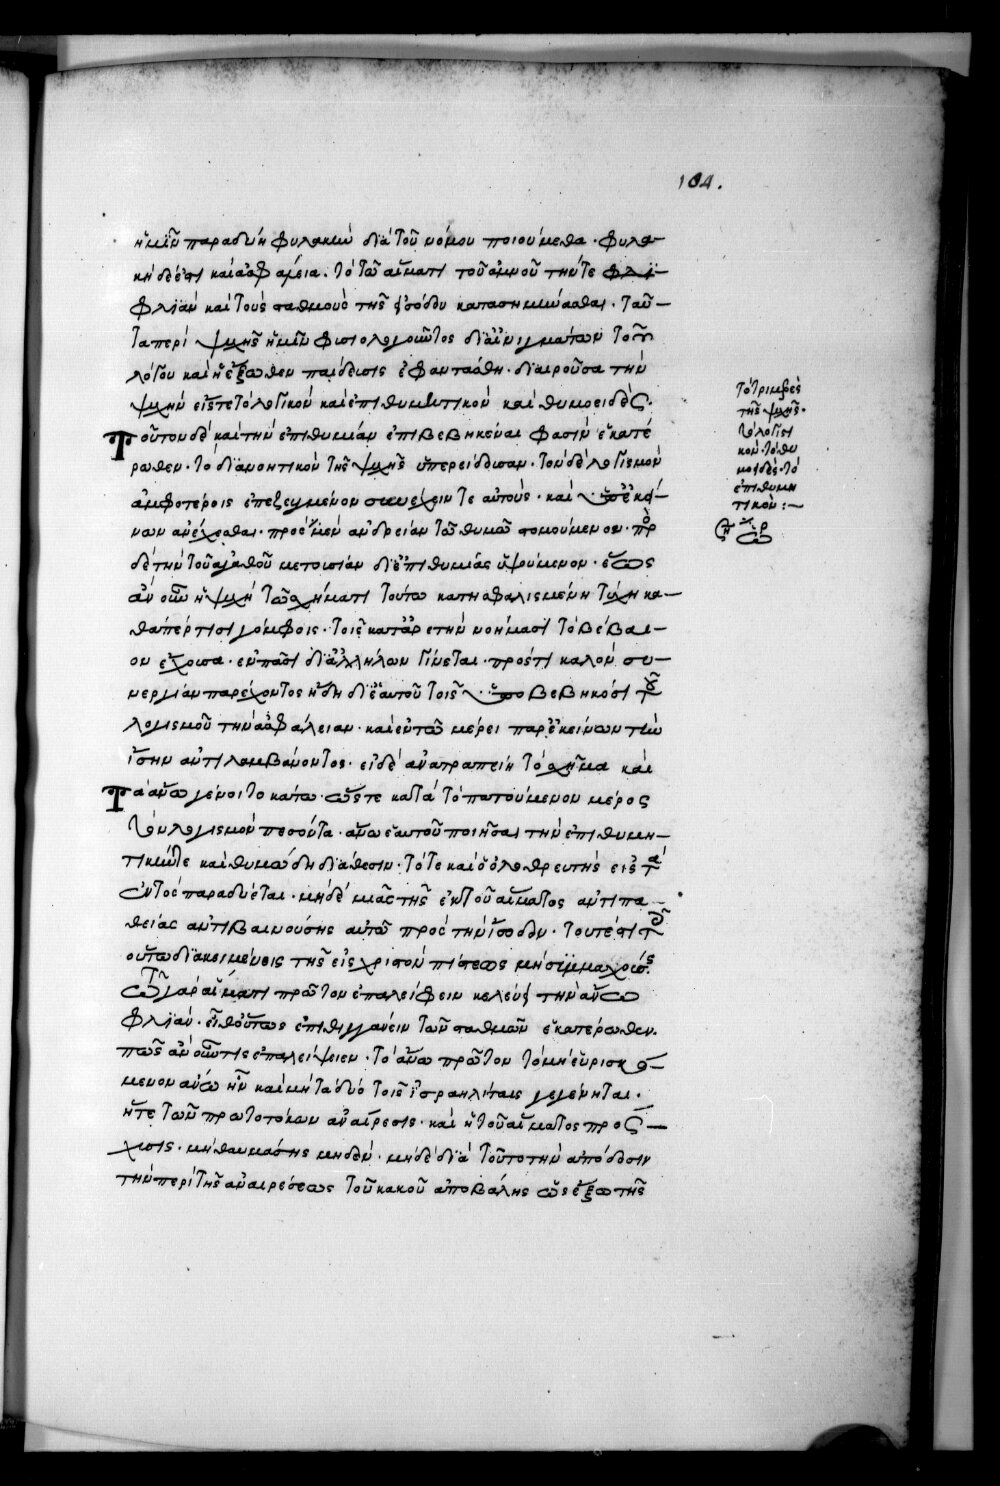 104.
ἡμῖν παραδύη φυλακὴν διὰ τοῦ νόμου ποιούμεθα · φυλα-
κὴ δέ ἐστι καὶ ἀσφάλεια · τὸ τῶ αἵματι τοῦ ἀμνοῦ τήν τε φλϊ-
φλϊὰν καὶ τοὺς σταθμοὺς τῆς εἰσόδου κατασημήνασθαι · ταῦ-
τα περὶ ψυχῆς ἡμῖν φυσιολογοῦντος δι' αἰνιγμάτων τοῦ
λόγου καὶ ἡ ἔξωθεν παίδευσις ἐφαντάσθη · διαιροῦσα τὴν
ψυχὴν εἴς τε τὸ λογικὸν καὶ ἐπιθυμητικὸν καὶ θυμοειδές ·
Τούτον δὲ καὶ τὴν ἐπιθυμίαν ἐπιβεβηκέναι φασὶν ἑκατέ
ρωθεν · τὸ διανοητικὸν τῆς ψυχῆς ὑπερείδουσαν · τὸν δὲ λογισμὸν
ἀμφοτέροις ἐπεζευγμένον συνέχειν τε αὐτοὺς · καὶ ὑπ' ἐκεί-
νων ἀνέχεσθαι · πρὸς μὲν ἀνδρείαν τῶ θυμῶ στομούμενον · πρὸς
δὲ τὴν τοῦ ἀγαθοῦ μετουσίαν δι' ἐπιθυμίας ὑψούμενον · ἕως
ἂν οὖν ἡ ψυχὴ τῶ σχήματι τούτω κατησφαλισμένη τύχη κα-
θάπερ τισὶ γόμφοις · τοῖς κατ' ἀρετὴν νοήμασι τὸ βέβαι-
ον ἔχουσα · ἐν πᾶσι δι' ἀλλήλων γίνεται · πρὸς τι καλὸν συ-
νεργίαν παρέχοντος ἤδη δι' ἑαυτοῦ τοῖς ὑποβεβηκόσι τοῦ
λογισμοῦ τὴν ἀσφάλειαν · καὶ ἐν τῶ μέρει παρ' ἐκείνων τὴν
ἴσην ἀντιλαμβάνοντος · εἰ δὲ ἀνατραπείη τὸ σχῆμα καὶ
Τὰ ἄνω γένοιτο κάτω · ὥστε κατὰ τὸ πατούμενον μέρος
τὸν λογισμὸν πεσόντα · ἄνω ἑαυτοῦ ποιῆσαι τὴν ἐπιθυμη-
τικήν τε καὶ θυμώδη διάθεσιν · τότε καὶ ὁ ὀλοθρευτὴς εἰς τὰ
ἐντὸς παραδύεται · μηδὲ μιᾶς τῆς ἐκ τοῦ αἵματος ἀντιπα-
θείας ἀντιβαινούσης αὐτῶ πρὸς τὴν εἴσοδον · τουτέστι τοῖς
οὕτω διακειμένοις τῆς εἰς χριστὸν πίστεως μὴ συμμαχούσης ·
τῶ γὰρ αἵματι πρῶτον ἐπαλείφειν κελεύει τὴν ἄνω
φλιάν · εἶθ' οὕτως ἐπιθιγγάνειν τῶν σταθμῶν ἑκατέρωθεν ·
πῶς ἂν οὖν τις ἐπαλείψειεν · τὸ ἄνω πρῶτον τὸ μὴ εὑρισκό-
μενον ἄνω ἦν καὶ μὴ τὰ δύο τοῖς ἰσραηλίταις γεγένηται ·
ἥτε τῶν πρωτοτόκων ἀναίρεσις · καὶ ἡ τοῦ αἵματος πρόσ-
χυσις · μὴ θαυμάσης μηδὲν · μηδὲ διὰ τοῦτο τὴν ἀπόδοσιν
τὴν περὶ τῆς ἀναιρέσεως τοῦ κακοῦ ἀποβάλης ὡς ἔξω τῆς
τὸ τριμερὲς
τῆς ψυχῆς ·
τὸ λογιστι
κόν · τὸ θυ
μοειδὲς · τὸ
ἐπιθυμη
τικόν :-